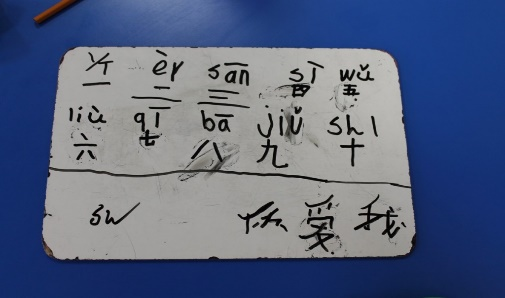 yī èr sān sì wǔ
一 二 三 四 五
liù qī bā jiǔ shI
六 七 八 九 十
sw 你 爱 我